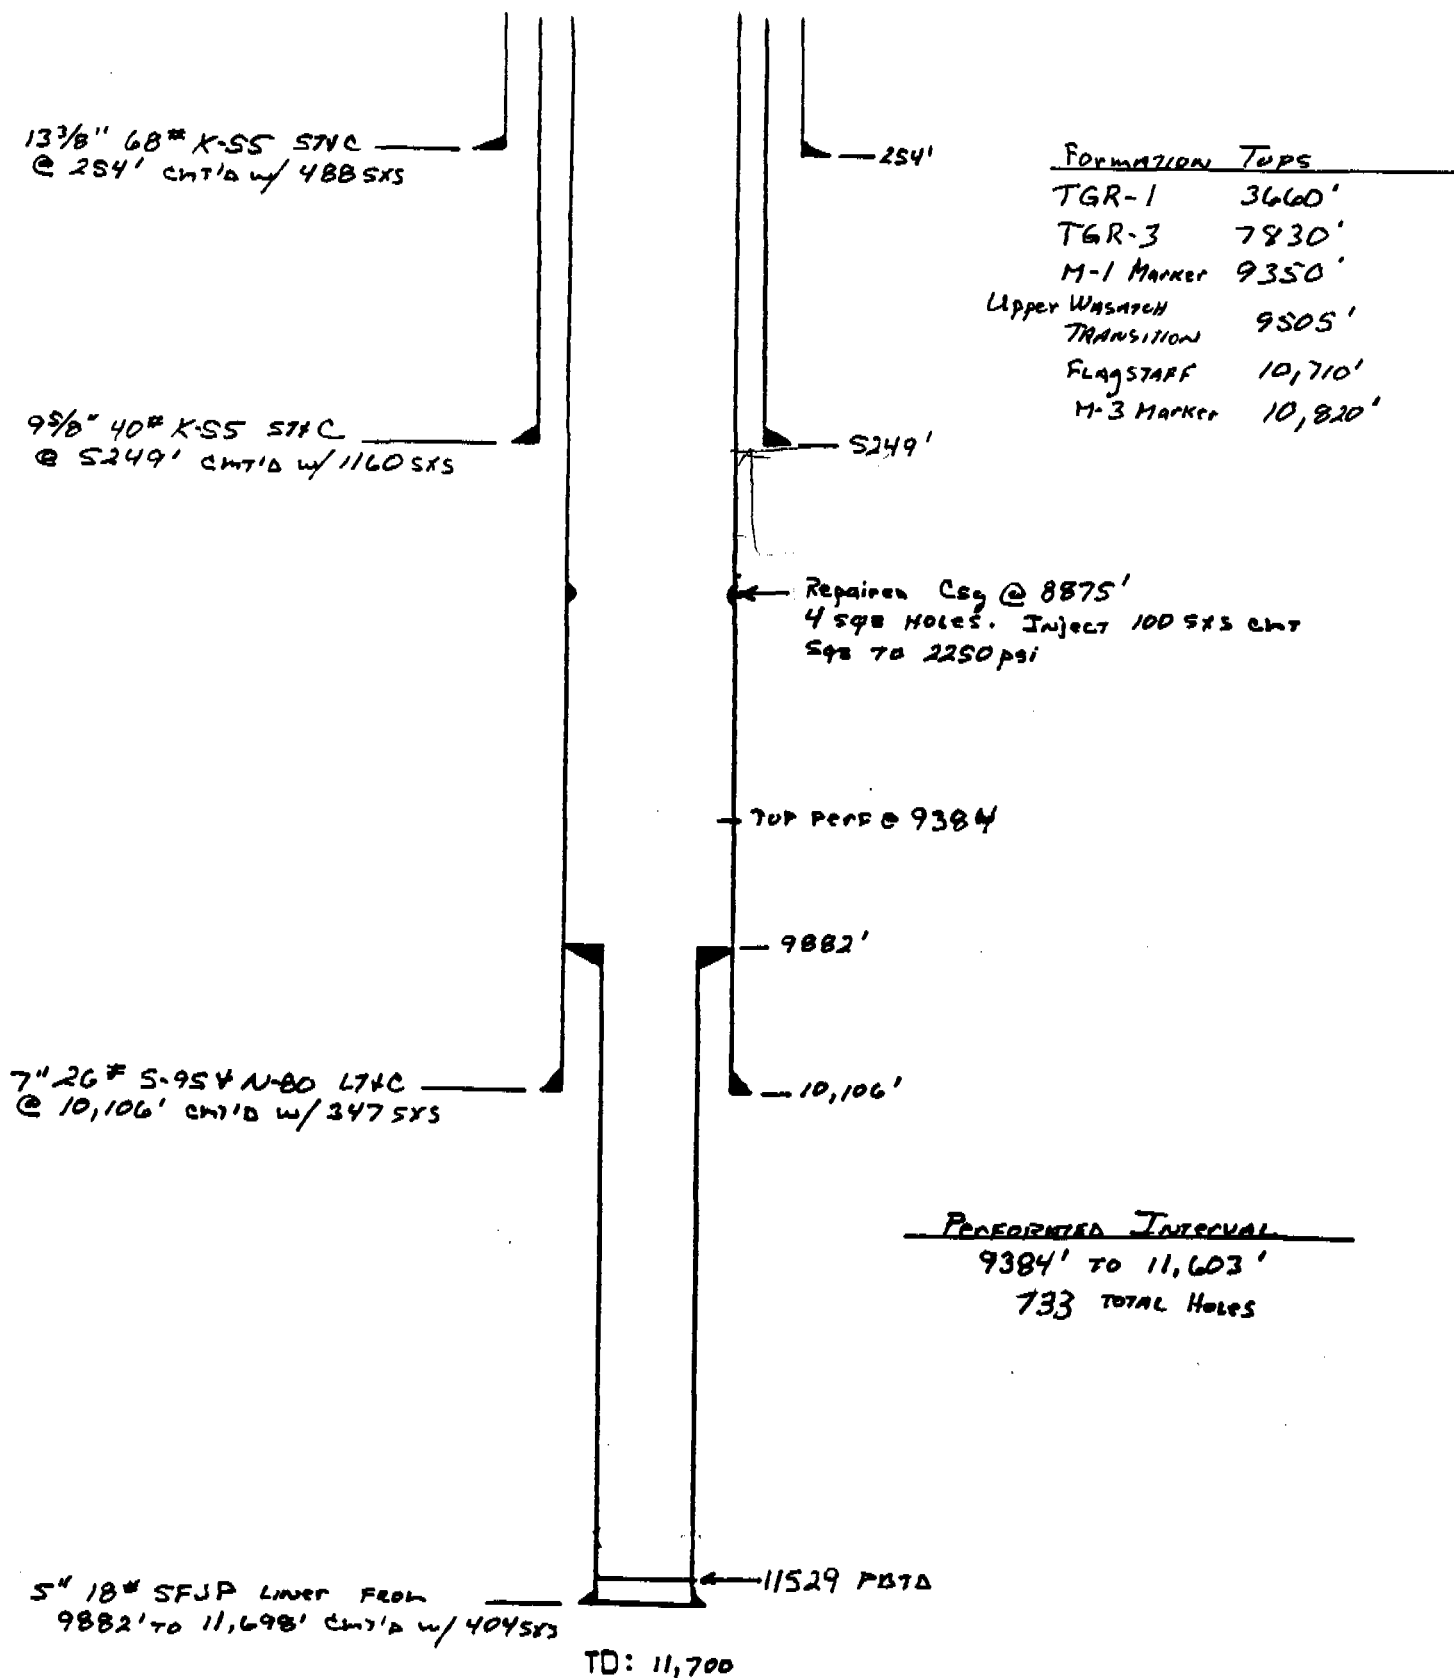 13 3/8" 68# K-55 ST&C
@ 254' CMT'D w/ 488 SXS
254'
Formation Tops
TGR-1 3660'
TGR-3 7830'
M-1 Marker 9350'
Upper Wasatch
Transition 9505'
Flagstaff 10,710'
M-3 Marker 10,820'
9 5/8" 40# K-55 ST&C
@ 5249' CMT'D w/ 1160 SXS
5249'
Repaired Csg @ 8875'
4 sqz Holes. Inject 100 SXS CMT
Sqz to 2250 psi
Top Perf @ 9384
9882'
7" 26# S-95 & N-80 LT&C
@ 10,106' CMT'D w/ 347 SXS
10,106'
Perforated Interval
9384' to 11,603'
733 Total Holes
11529 PBTD
5" 18# SFJP Liner From
9882' to 11,698' CMT'D w/ 404 SXS
TD: 11,700